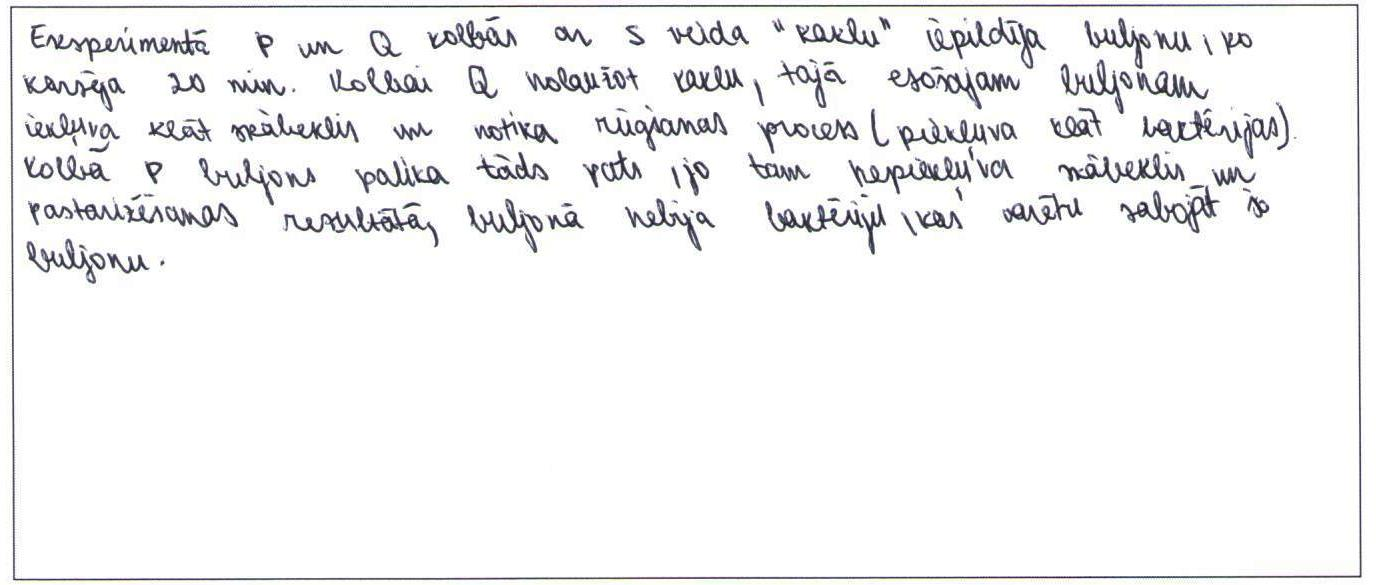 Eksperimentā P un Q kolbās ar S veida "kaklu" iepildīja buljonu, ko
karsēja 20 min. Kolbai Q nolaužot kaklu, tajā esošajam buljonam
iekļuva klāt skābeklis un notika rūgšanas process (piekļuva klāt baktērijas).
Kolbā P buljons palika tāds pats, jo tam nepiekļuva skābeklis un
pastarizēšanas rezultātā, buljonā nebija baktēriju, kas varētu sabojāt šo
buljonu.